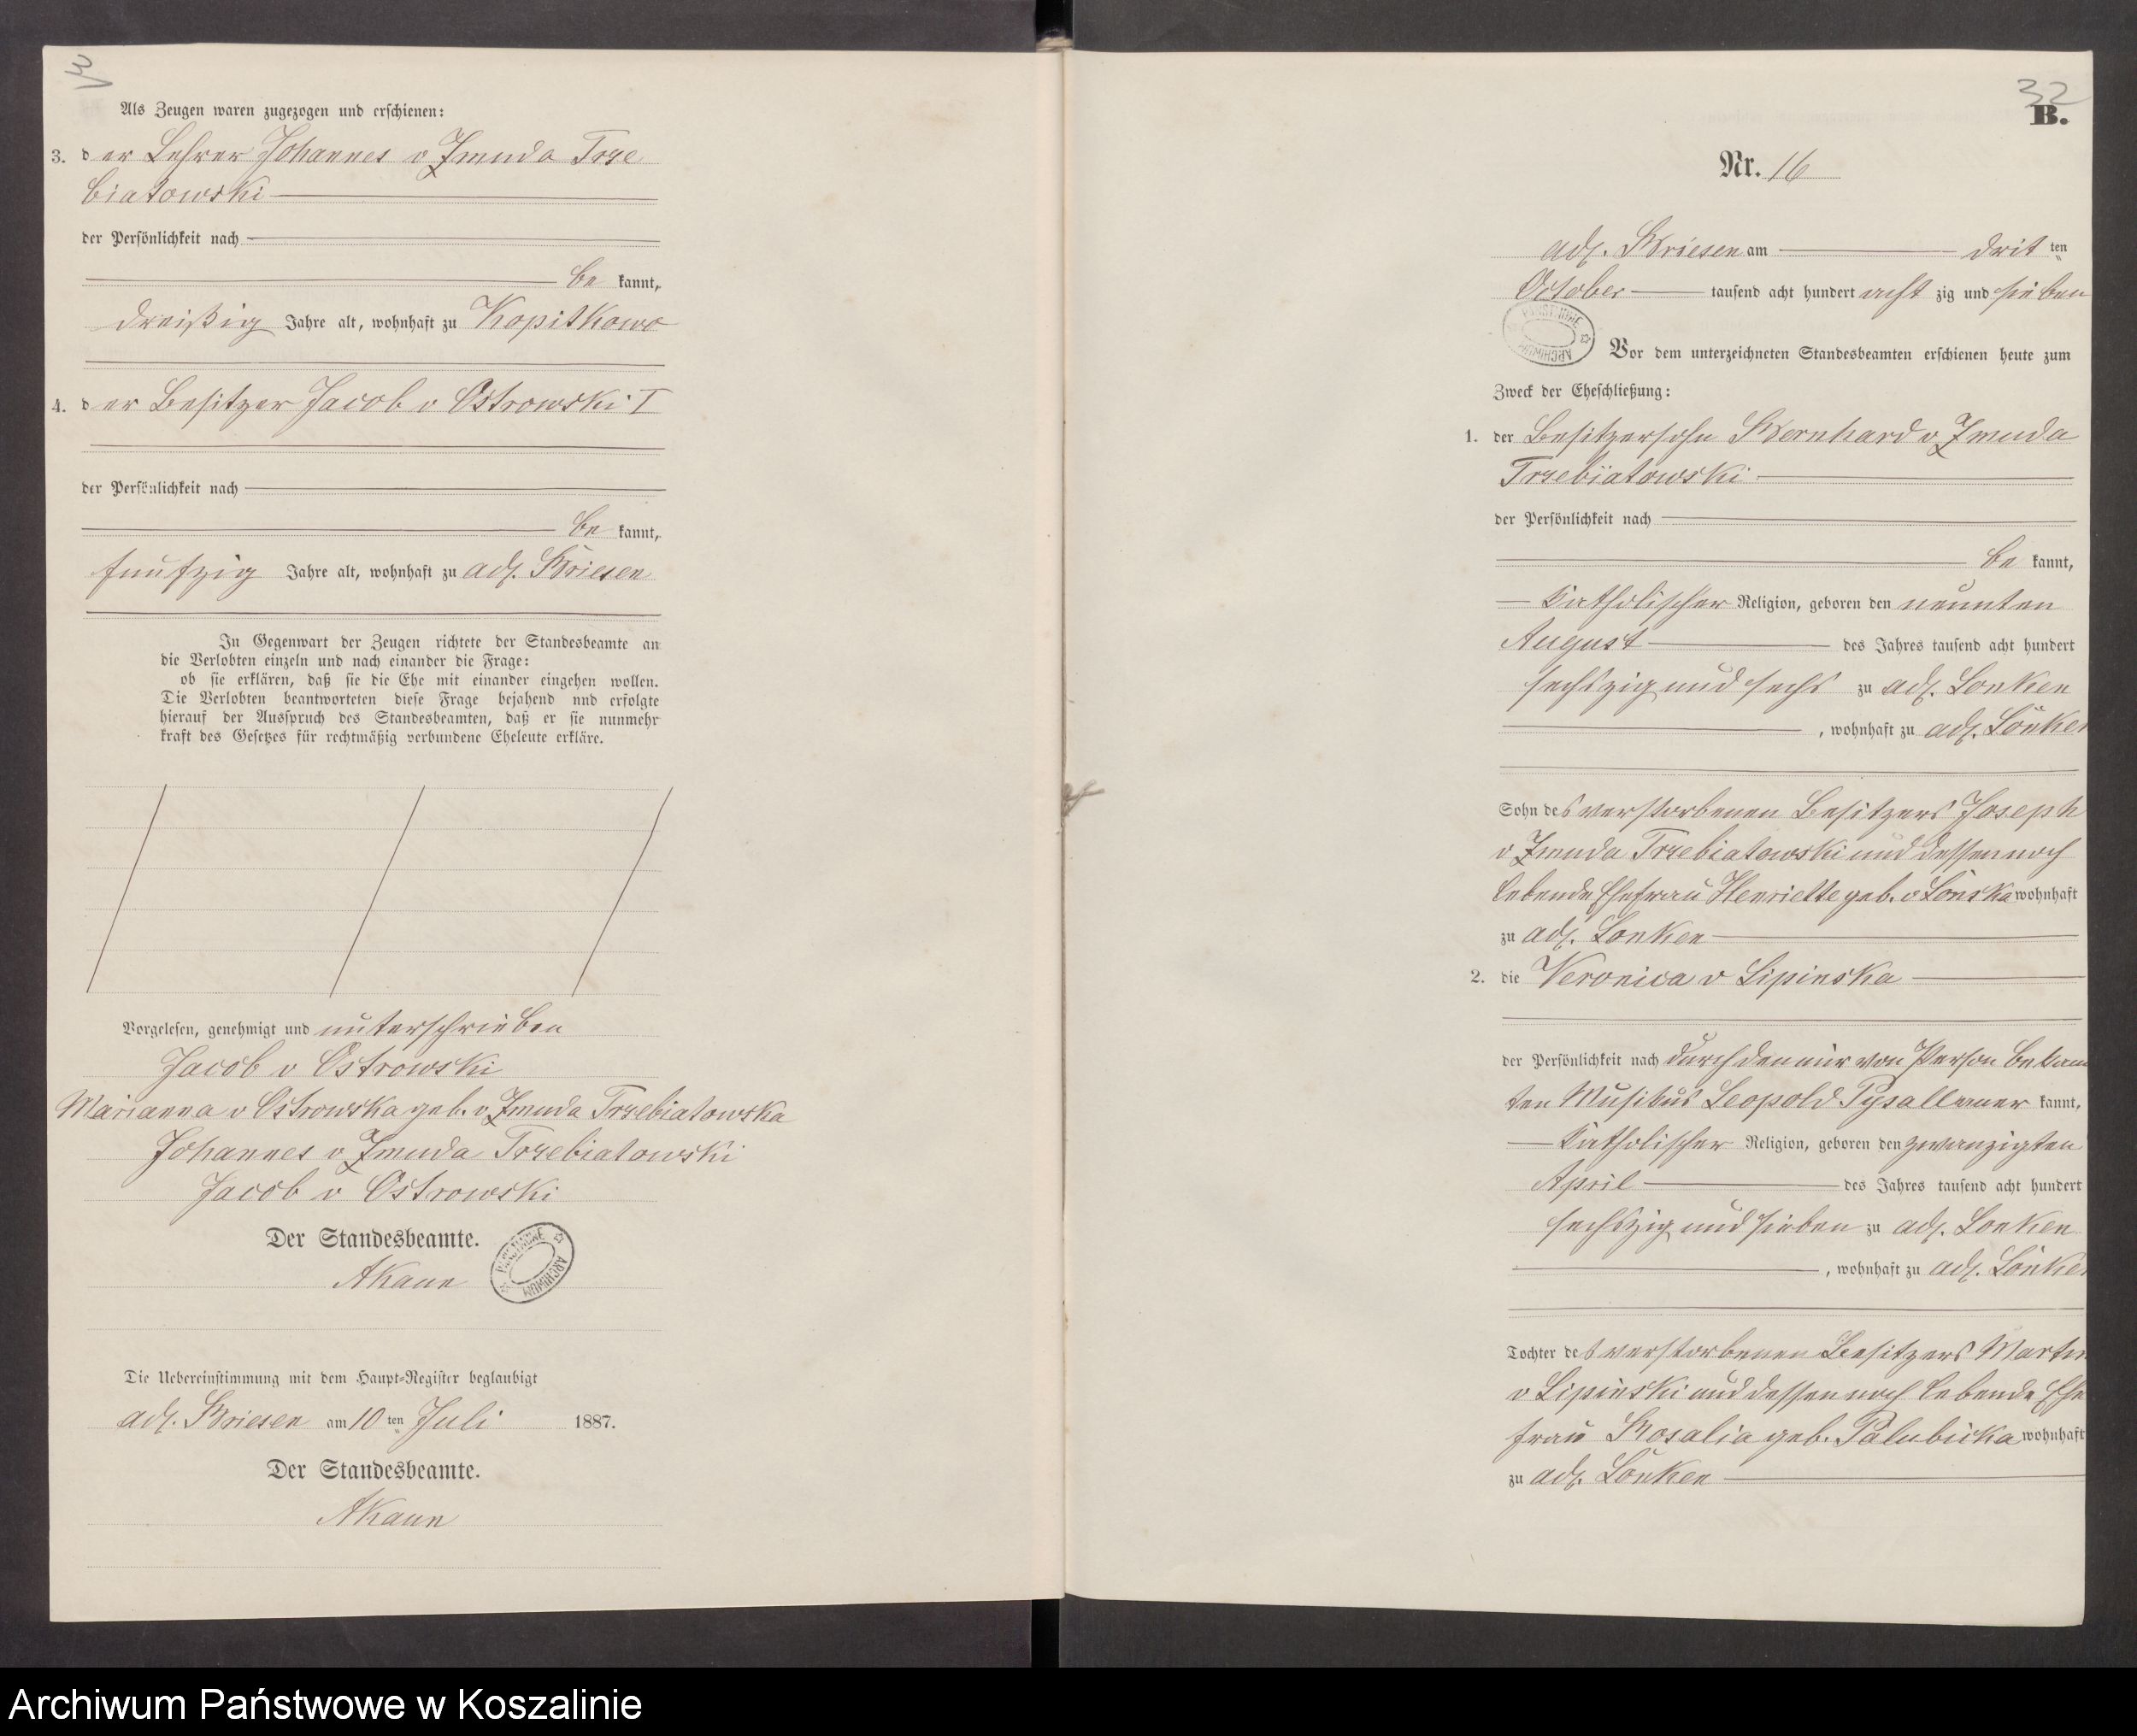 Als Zeugen waren zugezogen und erschienen:
3. der Lehrer Johannes v Zmuda Trze
biatowski
der Persönlichkeit nach
be kannt,
dreißig Jahre alt, wohnhaft zu Kopitkowo
4. der Besitzer Jacob v Ostrowski I
der Persönlichkeit nach
be kannt,
funfzig Jahre alt, wohnhaft zu adl. Briesen
In Gegenwart der Zeugen richtete der Standesbeamte an
die Verlobten einzeln und nach einander die Frage:
ob sie erklären, daß sie die Ehe mit einander eingehen wollen.
Die Verlobten beantworteten diese Frage bejahend nnd erfolgte
hierauf der Ausspruch des Standesbeamten, daß er sie nunmehr
kraft des Gesetzes für rechtmäßig verbundene Eheleute erkläre.
Vorgelesen, genehmigt und unterschrieben
Jacob v Ostrowski
Marianna v Ostrowska geb. v Zmuda Trzebiatowska
Johannes v Zmuda Trzebiatowski
Jacob v Ostrowski
Der Standesbeamte.
PAŃSTWOWE ARCHIWUM
Die Uebereinstimmung mit dem Haupt-Register beglaubigt
adl. Briesen am 10 ten Juli 1887.
Der Standesbeamte.
32
B.
Nr. 16
adl. Briesen am drit ten
October tausend acht hundert acht zig und sieben
PAŃSTWOWE ARCHIWUM
Vor dem unterzeichneten Standesbeamten erschienen heute zum
Zweck der Eheschließung:
1. der Besitzersohn Bernhard v Zmuda
Trzebiatowski
der Persönlichkeit nach
be kannt,
Katholischer Religion, geboren den neunten
August des Jahres tausend acht hundert
sechszig und sechs zu adl. Lonken
, wohnhaft zu adl. Lonken
Sohn des verstorbenen Besitzers Joseph
v Zmuda Trzebiatowski und dessen noch
lebende Ehefrau Henriette geb. v Lonska wohnhaft
zu adl. Lonken
2. die Veronica v Lipinska
der Persönlichkeit nach durch den mir von Person bekann
ten Musikus Leopold kannt,
Katholischer Religion, geboren den zwanzigten
April des Jahres tausend acht hundert
sechszig und sieben zu adl. Lonken
, wohnhaft zu adl. Lonken
Tochter des verstorbenen Besitzers Martin
v Lipinski und dessen noch lebende Ehe
frau Rosalia geb. Palubicka wohnhaft
zu adl. Lonken
Archiwum Państwowe w Koszalinie